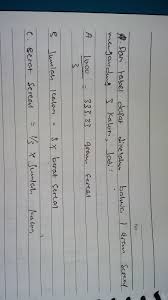 # Dari tabel dapat diketahui bahwa 1 gram sereal
mengandung 3 kalori, Jadi
A 1000 = 333.33 gram sereal
3
B Jumlah kalori = 3 x berat sereal
C. Berat sereal = 1/3 x Jumlah kalori